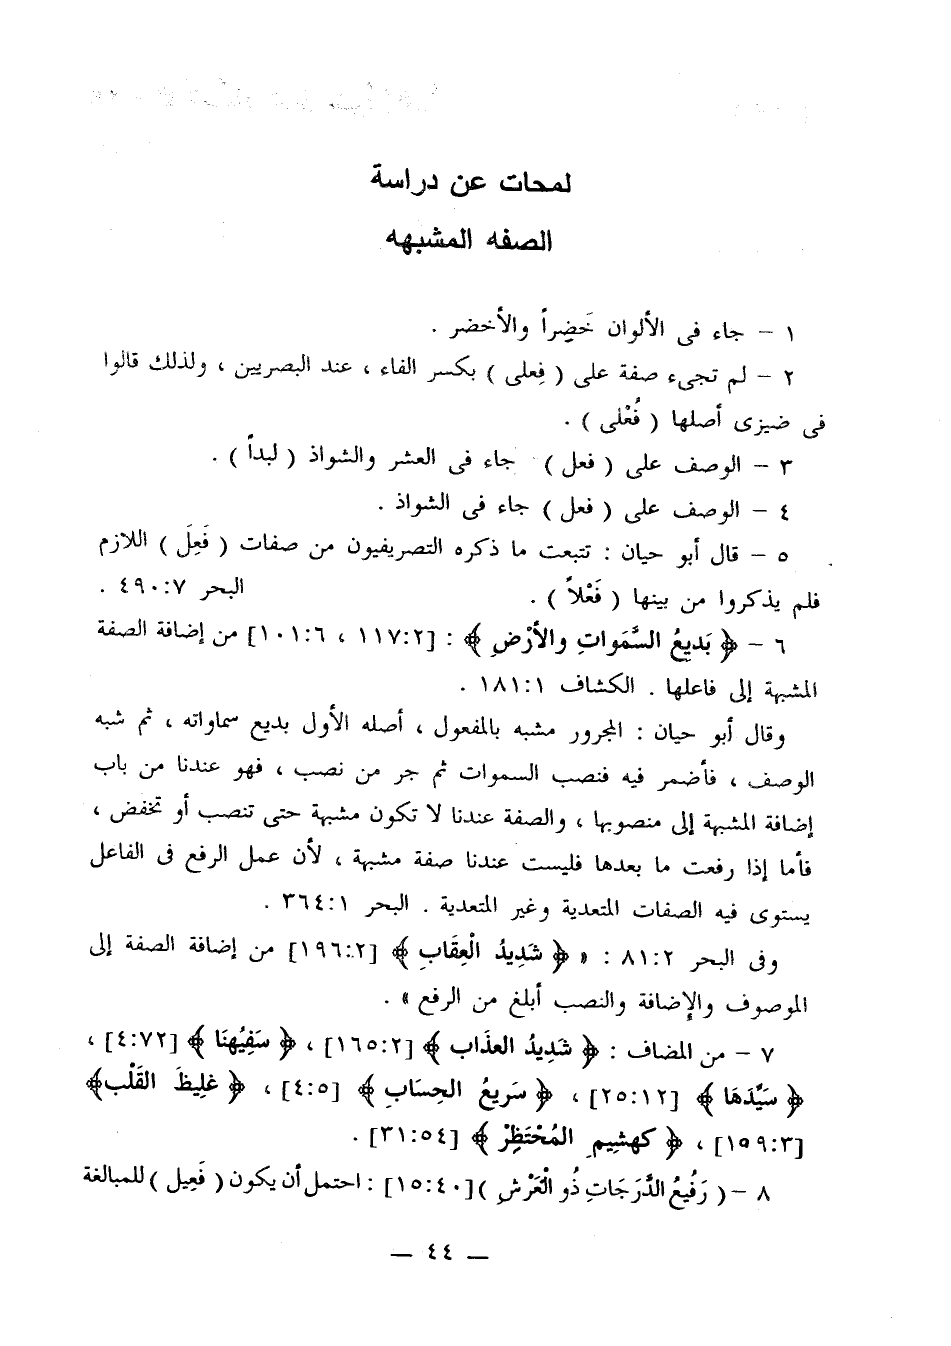 لمحات عن دراسة
الصفه المشبهه
١ – جاء فى الألوان خَضِراً والأخضر .
٢ – لم تجىء صفة على ( فِعلى ) بكسر الفاء ، عند البصريين ، ولذلك قالوا
فى ضيزى أصلها ( فُعْلى ) .
٣ – الوصف على ( فعل ) جاء فى العشر والشواذ ( لبداً ) .
٤ – الوصف على ( فعل ) جاء فى الشواذ .
٥ – قال أبو حيان : تتبعت ما ذكره التصريفيون من صفات ( فَعِلَ ) اللازم
فلم يذكروا من بينها ( فَعْلاً ) . البحر ٤٩٠:٧ .
٦ – ﴿ بَدِيعُ السَّمَواتِ والأرْضِ ﴾ : [١١٧:٢ ، ١٠١:٦] من إضافة الصفة
المشبهة إلى فاعلها . الكشاف ١٨١:١ .
وقال أبو حيان : المجرور مشبه بالمفعول ، أصله الأول بديع سماواته ، ثم شبه
الوصف ، فأضمر فيه فنصب السموات ثم جر من نصب ، فهو عندنا من باب
إضافة المشبهة إلى منصوبها ، والصفة عندنا لا تكون مشبهة حتى تنصب أو تخفض ،
فأما إذا رفعت ما بعدها فليست عندنا صفة مشبهة ، لأن عمل الرفع فى الفاعل
يستوى فيه الصفات المتعدية وغير المتعدية . البحر ٣٦٤:١ .
وفى البحر ٨١:٢ : « ﴿ شَدِيدُ الْعِقَابِ ﴾ [١٩٦:٢] من إضافة الصفة إلى
الموصوف والإضافة والنصب أبلغ من الرفع » .
٧ – من المضاف : ﴿ شَدِيدُ العذَاب ﴾ [١٦٥:٢] ، ﴿ سَفِيُهنَا ﴾ [٤:٧٢] ،
﴿ سَيِّدَهَا ﴾ [٢٥:١٢] ، ﴿ سَرِيعُ الحِسَابِ ﴾ [٤:٥] ، ﴿ غلِيظَ القَلْبِ﴾
[١٥٩:٣] ، ﴿ كهشِيمِ المُحْتَظِرْ ﴾ [٣١:٥٤] .
٨ – ( رَفُيعُ الدَّرَجَاتِ ذُو الْعَرْشِ ) [١٥:٤٠] : احتمل أن يكون ( فَعِيل ) للمبالغة
— ٤٤ —